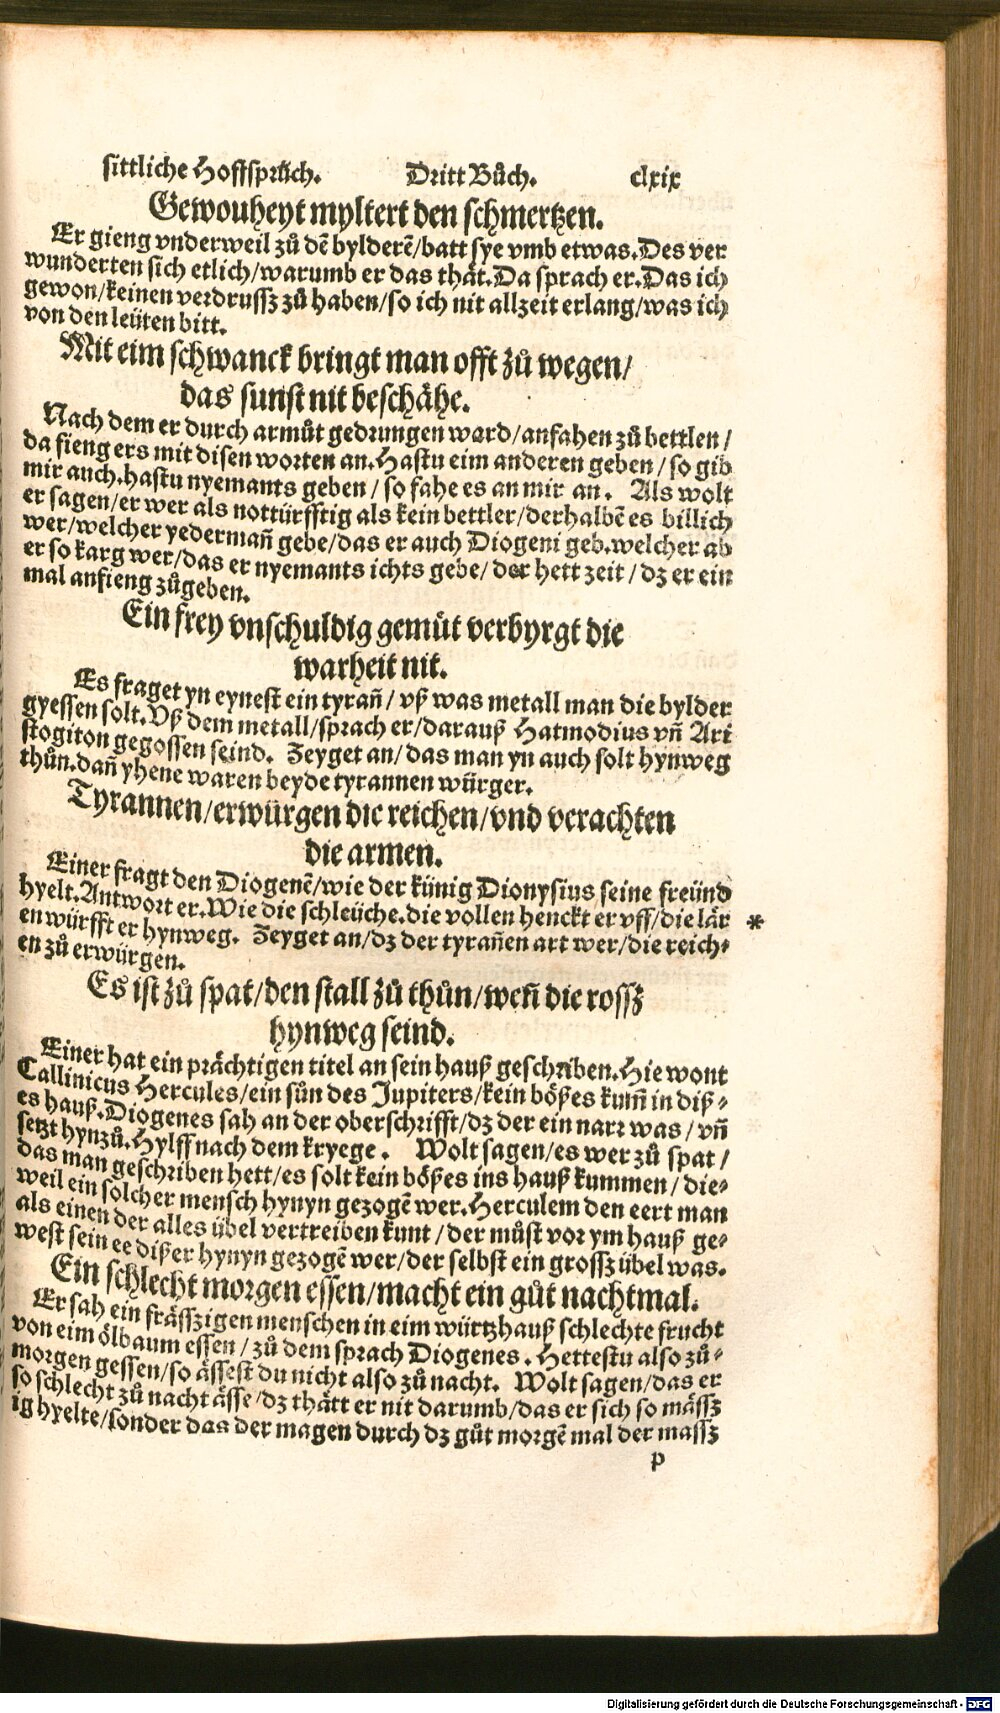 sittliche Hoffsprüch. Dritt Bůch. clxix
Gewouheyt myltert den schmertzen.
Er gieng vnderweil zů dē bylderē/batt sye vmb etwas. Des ver
wunderten sich etlich/warumb er das thăt. Da sprach er. Das ich
gewon/keinen verdrussz zů haben/so ich nit allzeit erlang/was ich
von den leüten bitt.
Mit eim schwanck bringt man offt zů wegen/
das sunst nit beschähe.
Nach dem er durch armůt gedrungen ward/anfahen zů bettlen/
da fieng ers mit disen worten an. Hastu eim anderen geben/so gib
mir auch. hastu nyemants geben/so fahe es an mir an. Als wolt
er sagen/er wer als nottürfftig als kein bettler/derhalbē es billich
wer/welcher yedermañ gebe/das er auch Diogeni geb. welcher ab
er so karg wer/das er nyemants ichts gebe/der hett zeit/dz er ein
mal anfieng zůgeben.
Ein frey vnschuldig gemüt verbyrgt die
warheit nit.
Es fraget yn eynest ein tyrañ/vß was metall man die bylder
gyessen solt. Vß dem metall/sprach er/darauß Hatmodius vñ Ari
stogiton gegossen seind. Zeyget an/das man yn auch solt hynweg
thůn. dañ yhene waren beyde tyrannen würger.
Tyrannen/erwürgen die reichen/vnd verachten
die armen.
Einer fragt den Diogenē/wie der künig Dionysius seine freünd
hyelt. Antwort er. Wie die schleüche. die vollen henckt er vff/die lär *
en würfft er hynweg. Zeyget an/dz der tyrañen art wer/die reich-
en zů erwürgen.
Es ist zů spat/den stall zů thůn/weñ die rossz
hynweg seind.
Einer hat ein prächtigen titel an sein hauß geschriben. Hie wont
Callinicus Hercules/ein sůn des Jupiters/kein bößes kum̃ in diß-
es hauß. Diogenes sah an der oberschrifft/dz der ein narr was/vñ
setzt hynzů. Hylff nach dem kryege. Wolt sagen/es wer zů spat/
das man geschriben hett/es solt kein bößes ins hauß kummen/die-
weil ein solcher mensch hynyn gezogē wer. Herculem den eert man
als einen der alles übel vertreiben kunt/der můst vor ym hauß ge-
west sein ee dißer hynyn gezogē wer/der selbst ein grossz übel was.
Ein schlecht morgen essen/macht ein gůt nachtmal.
Er sah ein frässzigen menschen in eim würtzhauß schlechte frucht
von eim ölbaum essen/zů dem sprach Diogenes. Hettestu also zů-
morgen gessen/so ässest du nicht also zů nacht. Wolt sagen/das er
so schlecht zů nacht ässe/dz thätt er nit darumb/das er sich so mässz
ig hyelte/sonder das der magen durch dz gůt morgē mal der massz
p
Digitalisierung gefördert durch die Deutsche Forschungsgemeinschaft - DFG